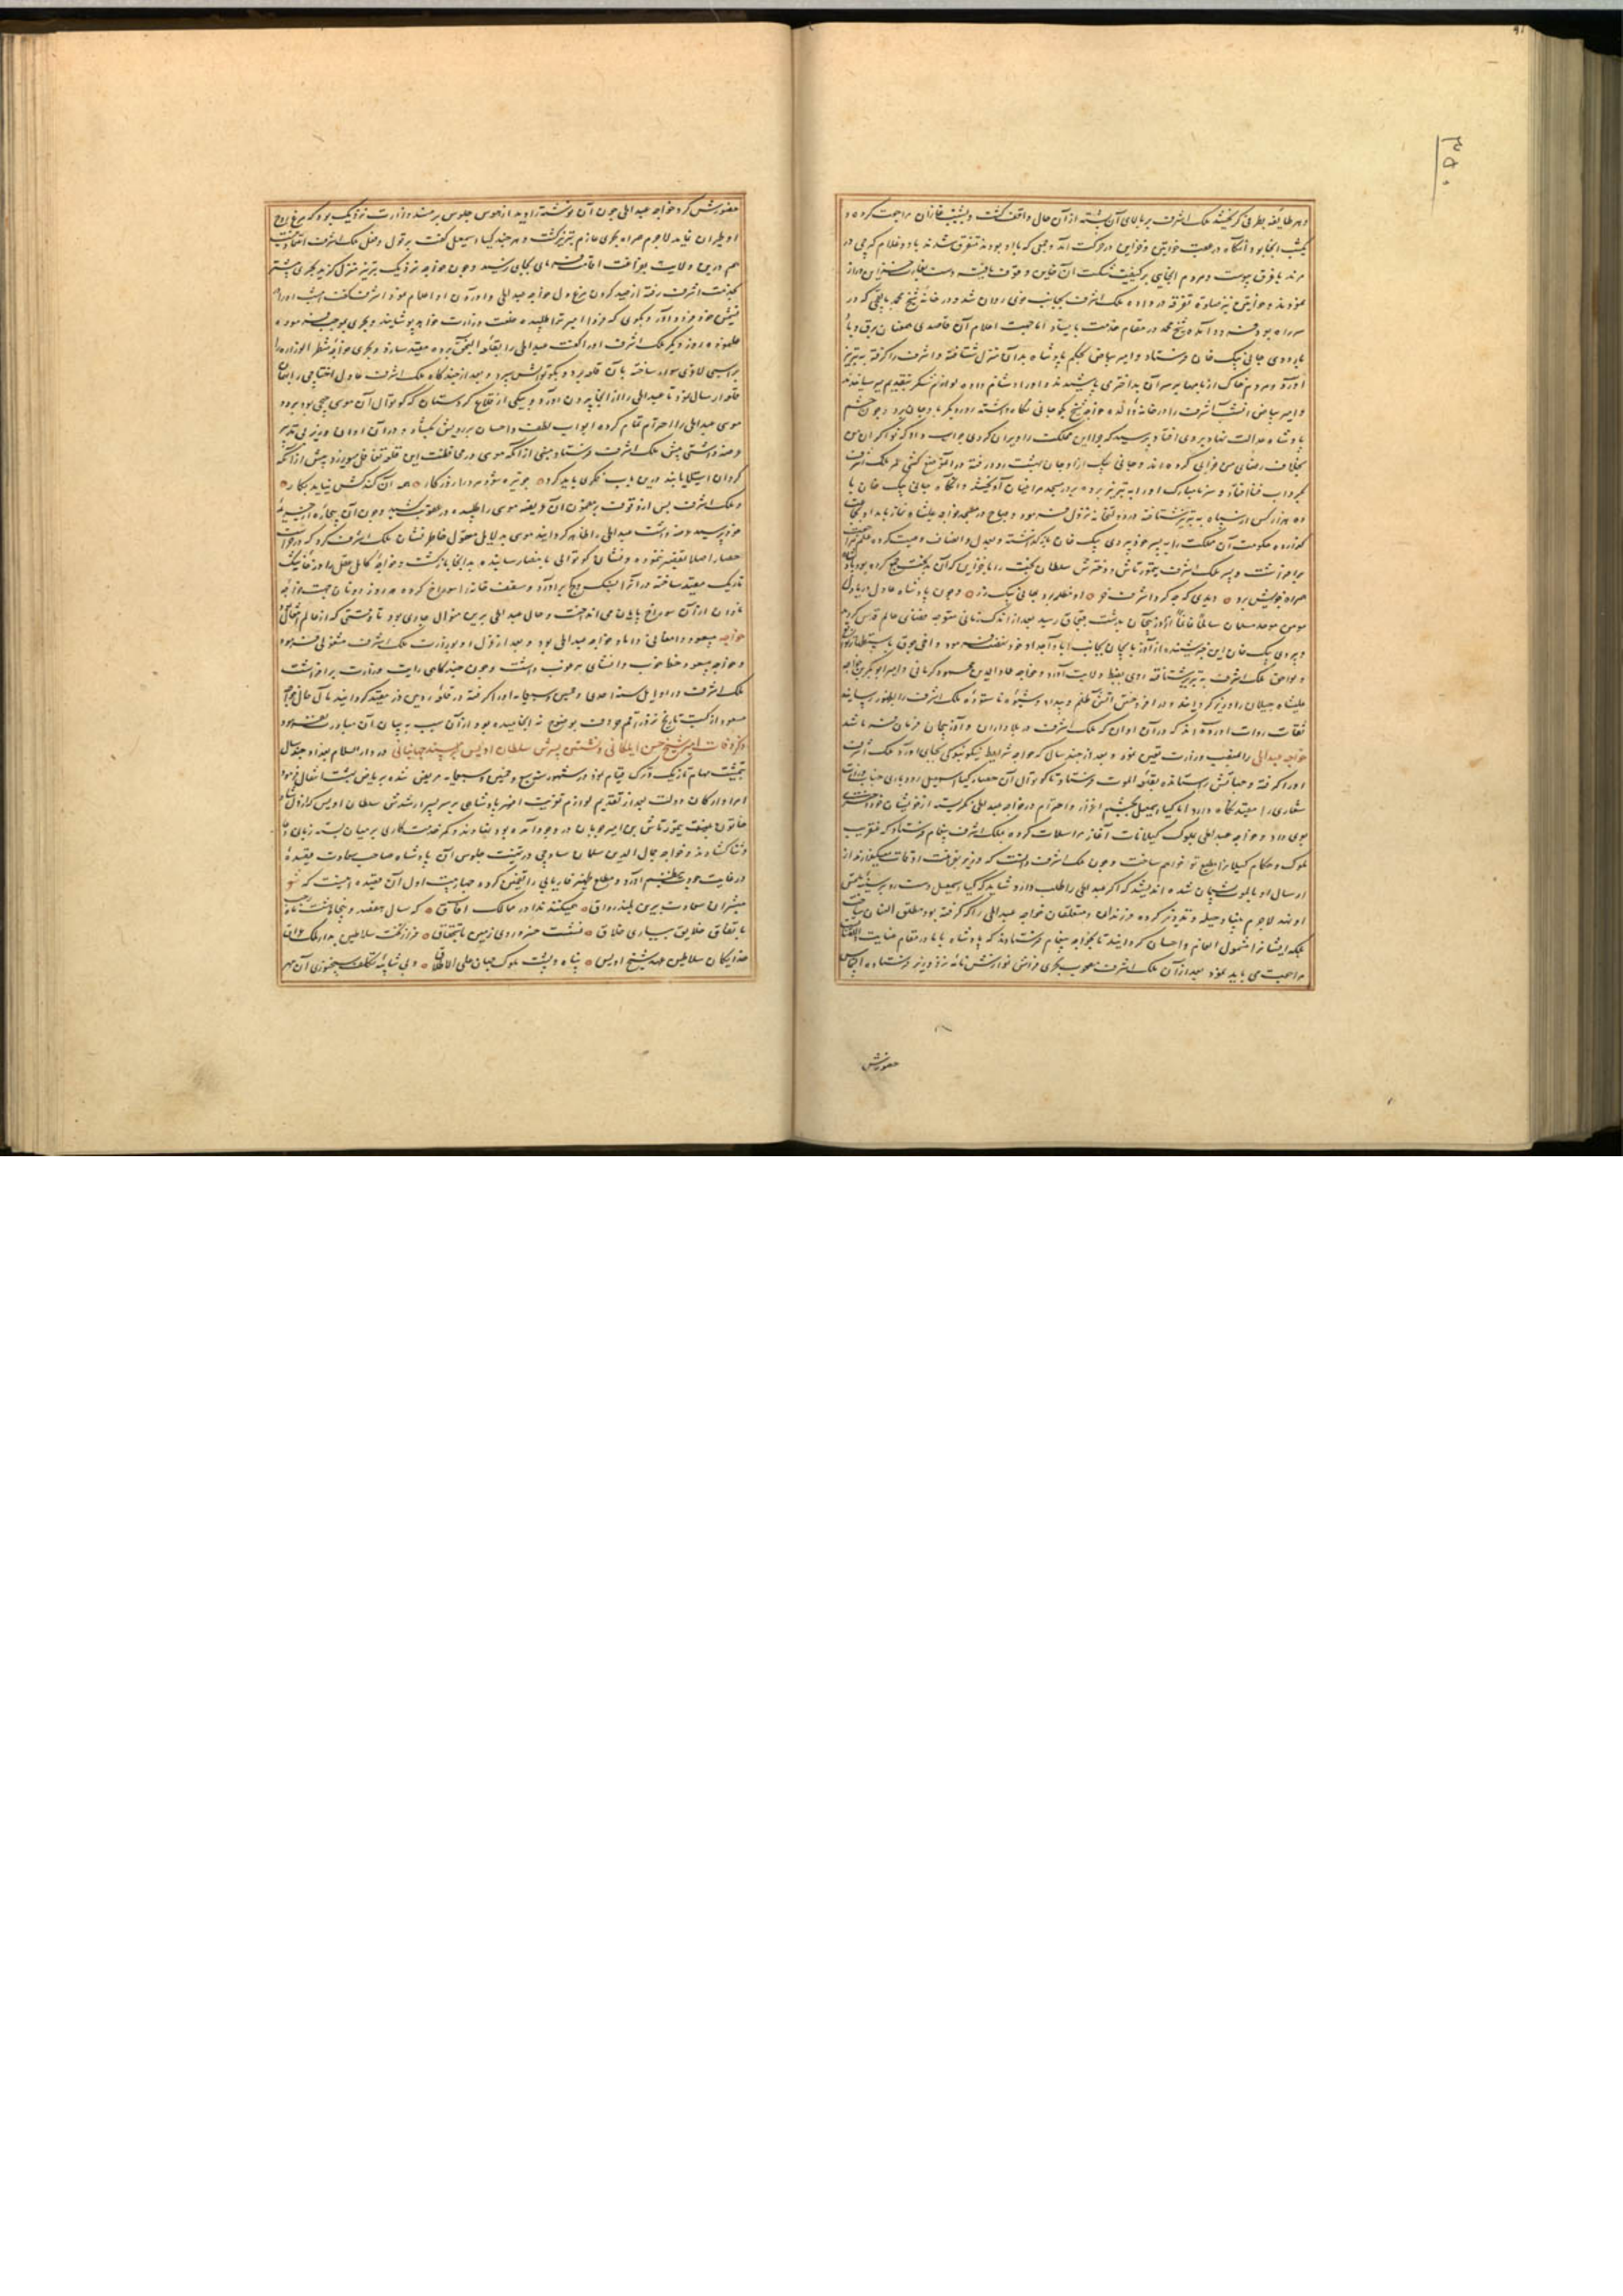 ۳۵۰
و هر طایفه بطرفی گریختند ملک اشرف بر بالای آن پشته از آن حال واقف گشت و بشنب غازان مراجعت کرده و
یکشب آنجا بود و آنگاه در عقب خواتین و خزاین در حرکت آمد و جمعی که با او بودند متفرق شدند با دو غلام گرجی در
مرند
نمودند و خواتین نیز تفرقه در داده ملک اشرف بجانب خوی روان شد و در خانه شیخ محمد که در
سر راه بود فرود آمده شیخ محمد در مقام خدمت بایستاد اما جهت اعلام آن قاصدی همعنان برق و باد
باردوی جانی بیک خان فرستاد و امیر بیاض بحکم پادشاه بدان منزل شتافته و اشرف را گرفته به تبریز
آورد و مردم خاک از بامها بر سر آن بداختر می پاشیدند و او را دشنام داده لوازم شکر بتقدیم می رسانیدند
و امیر بیاض آنشب اشرف را در خانه خواجه شیخ نگاه داشته روز دیگر
پادشاه عدالت نهاد بر وی افتاد پرسید که چرا این مملکت را ویران کردی جواب داد که نوکران من
بخلاف رضای من خرابی کرده اند و جانی بیک از اوجان بهشت رود رفته
او را به تبریز برده بر در مسجد مراغیان آویختند و آنگاه جانی بیک خان با
ده هزار کس از سپاه به تبریز شتافته در دولتخانه نزول فرمود و صباح در مسجد خواجه علیشاه نماز بامداد بجماعت
گزارده حکومت آن مملکت را به پسر خود بردی بیک خان باز گذاشته و بعدل و انصاف وصیت کرده علم
برافراشت و پسر ملک اشرف تیمورتاش و دخترش سلطان بخت را با خزاین که آن بدبخت جمع کرده بود
همراه خویش برد ○ دیدی که چه کرد اشرف خر ○ او مظلمه برد جانی بیک زر ○ و چون پادشاه عادل دریا دل
مومن موحد مسلمان سالما غانما از آذربیجان بدشت قبچاق رسید بعد از اندک زمانی متوجه فضای عالم قدس گردید
و بردی بیک خان این خبر شنیده از آذربایجان بجانب آبا و اجداد خود نهضت فرمود و اخی جوق
و لواحق ملک اشرف به تبریز شتافته روی بضبط ولایت آورد و خواجه عماد الدین محمود کرمانی و امیر ابوبکر بن خواجه
علیشاه جیلان را وزیر گردانید و در افروختن آتش ظلم و بیداد شیوه ناستوده ملک اشرف را بظهور رسانید
ثقات روات آورده اند که در آن اوان که ملک اشرف در بلاد اران و آذربیجان فرمان فرما شد
خواجه عبد الحی را بمنصب وزارت تعیین نمود و بعد از چند سال که خواجه شرایط نیکو بندگی بجای آورد ملک اشرف
او را گرفته و جهاتش را ستانده بقلعه الموت فرستاد تا کوتوال آن حصار کیا اسمعیل رودباری جناب وزارت
شعاری را مقید نگاه دارد اما کیا اسمعیل بچشم اعزاز و احترام در خواجه عبد الحی نگریست
بوی داد و خواجه عبد الحی بملوک گیلانات آغاز مراسلات کرده بملک اشرف پیغام فرستاد که عنقریب
ملوک و حکام گیلان را مطیع تو خواهم ساخت و چون ملک اشرف دانست که وزیر بفراغت اوقات میگذراند از
ارسال او بالموت پشیمان شده اندیشید که اگر عبد الحی را طلب دارد شاید که کیا اسمعیل دست رد
او نهد لاجرم بنیاد حیله و تدویر کرده فرزندان و متعلقان خواجه عبد الحی را که گرفته بود مطلق العنان ساخت
بلکه ایشانرا مشمول انعام و احسان گردانید تا بخواجه پیغام فرستادند که پادشاه با ما در مقام عنایت
مراجعت می باید نمود بعد از آن ملک اشرف مصحوب بکری فراش نوازش نامه نزد وزیر فرستاده التماس
حضورش
حضورش کرد خواجه عبد الحی چون آن نوشته را دید از هوس جلوس بر مسند وزارت نزدیک بود که مرغ روح
او طیران نماید لاجرم همراه بکری عازم تبریز گشت و هر چند کیا اسمعیل گفت بر قول و فعل ملک اشرف اعتماد نیست
هم درین ولایت بفراغت اقامت فرمای بجای نرسید و چون خواجه نزدیک تبریز منزل گزید بکری پیشتر
بخدمت اشرف رفته از صید کردن مرغ دل خواجه عبد الحی و آوردن او اعلام نمود اشرف گفت امشب او را در
خود فرود آور و بگوی که فردا امیر ترا طلبیده خلعت وزارت خواهد پوشانید و بکری بموجب فرموده
عمل نموده روز دیگر ملک اشرف او را گفت عبد الحی را بقلعه النجق برده مقید سازد و بکری خواجه منتظر الوزاره را
بر اسبی لاغری سوار ساخته بآن قلعه برد و بکوتوالش سپرد و بعد از چند گاه ملک اشرف
قلعه ارسال نمود تا عبد الحی را از آنجا بیرون آورد و بیکی از قلاع کردستان که کوتوال آن موسی بود برد و
موسی عبد الحی را احترام تمام کرده ابواب لطف و احسان بر رویش بگشاد و در آن اوان وزیر بی تدبیر
عرضه داشتی پیش ملک اشرف فرستاد مبنی از آنکه موسی در محافظت این قلعه تغافل میورزد پیش از آنکه
کردان استیلا یابند درین باب فکری باید کرد ○ چو تیره شود مرد را روزگار ○ همه آن کند کش نیاید بکار ○
و ملک اشرف پس از وقوف بر مضمون آن عریضه موسی را طلبیده در عقوبت کشید و چون آن بیچاره از جریمه
خود پرسید عرضه داشت عبد الحی را ظاهر گردانید موسی بدلایل معقول خاطر نشان ملک اشرف کرد که در حراست
حصار اصلا تقصیر ننموده و نشان کوتوالی بامضا رسانیده بدانجا بازگشت و خواجه کامل عقل را در خانه تنگ
تاریک مقید ساخته در آنرا بسنگ و گچ برآورد و سقف خانه را سوراخ کرده هر روز دو نان جهت خواجه
نادان از آن سوراخ پایان می انداخت و حال عبد الحی برین منوال جاری بود تا وقتی که از عالم انتقال نمود
خواجه مسعود دامغانی داماد خواجه عبد الحی بود و بعد از عزل او بوزارت ملک اشرف مشغولی فرمود
و خواجه مسعود خط خوب و انشای مرغوب داشت و چون چند گاهی رایت وزارت برافراشت
ملک اشرف در اوایل سنه احدی و خمسین و سبعمایه او را گرفته در قلعه رویین دز مقید گردانید مآل حال خواجه
مسعود از کتب تاریخ نزد راقم حروف بوضوح نه انجامیده بود از آن سبب به بیان آن مبادرت ننمود
ذکر وفات امیر شیخ حسن ایلکانی و نشستن پسرش سلطان اویس بر مسند جهانبانی در دار السلام بغداد هفده سال
بتمشیت مهام تاژیک و ترک قیام نمود در شهور سبع و خمسین و سبعمایه مریض شده بریاض بهشت انتقال فرمود
امرا و ارکان دولت بعد از تقدیم لوازم تعزیت افسر پادشاهی بر سر پسر ارشدش سلطان اویس که از دلشاد
خاتون بنت تیمورتاش بن امیر چوبان در وجود آمده بود نهادند و کمر خدمتکاری بر میان بسته زبان دعا
و ثنا گشادند و خواجه جمال الدین سلمان ساوجی در تهنیت جلوس آن پادشاه صاحب سعادت قصیده
در غایت جودت بنظم آورد و مطلع ظهیر فاریابی را تضمین کرده چهار بیت اول آن قصیده اینست که شعر
مبشران سعادت برین بلند رواق ○ همیکنند ندا در ممالک آفاق ○ که سال هفصد و پنجاه و هشت ماه رجب
باتفاق خلایق بیاری خلاق ○ نشست خسرو روی زمین باستحقاق ○ فراز تخت سلاطین بدار ملک عراق
خدایگان سلاطین عهد شیخ اویس ○ پناه و پشت ملوک جهان علی الاطلاق ○ و بی شایبه تکلف